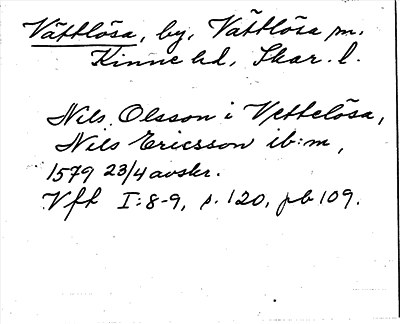 Vättlösa, by, Vättlösa sn.
Kinne hd, Skar. l.
Nils Olsson i Vettelösa,
Nils Ericsson ib:m,
1579 23/4 avskr.
Vfh I:8-9, s. 120, pb 109.